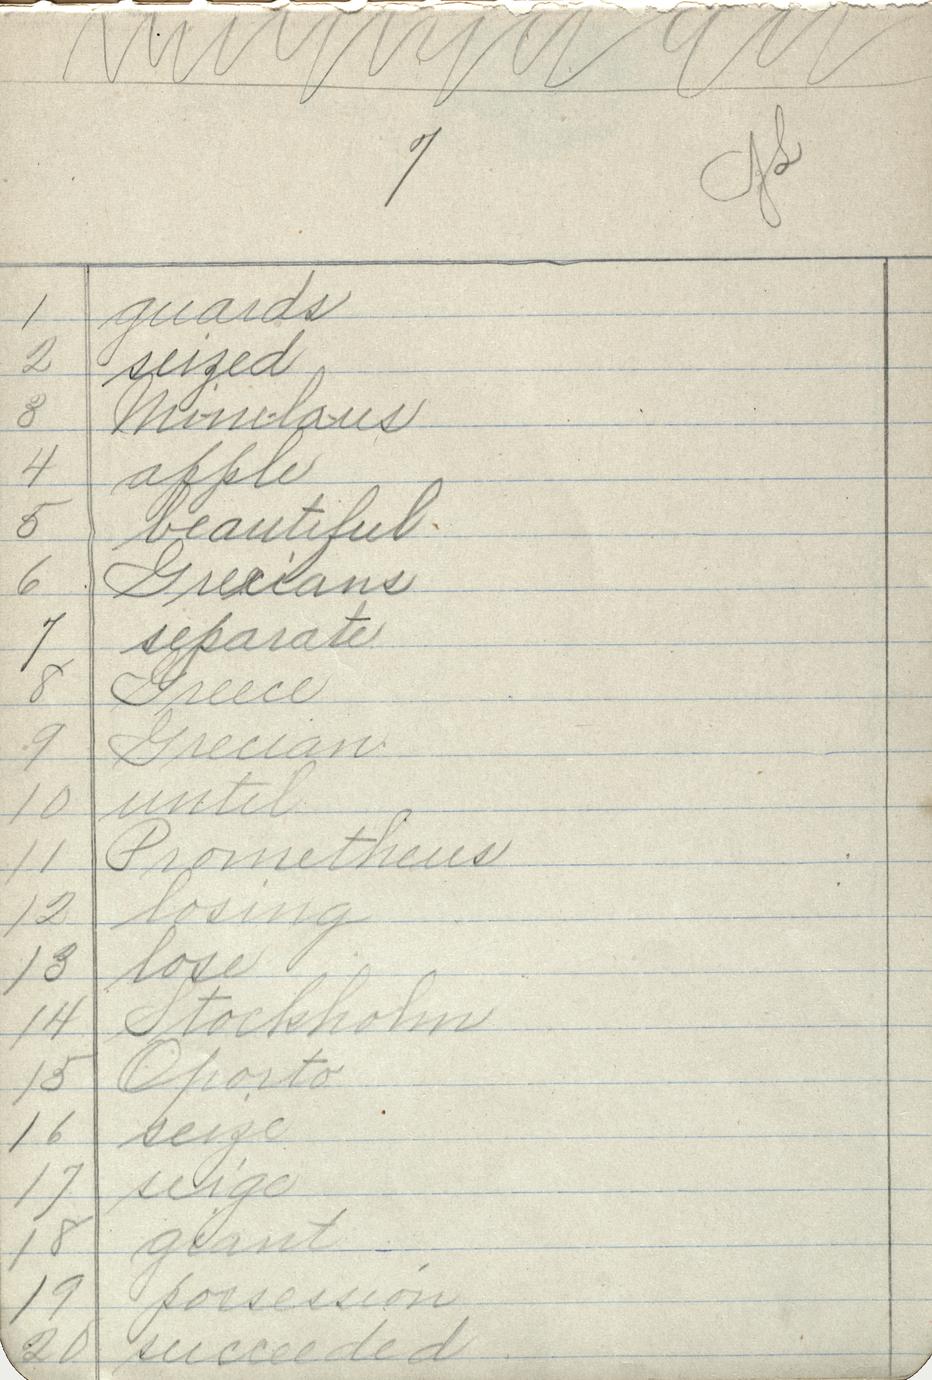 7
1 guards
2 seized
3 Minelaus
4 apple
5 beautiful
6 Grecians
7 separate
8 Greece
9 Grecian
10 until
11 Prometheus
12 losing
13 lose
14 Stockholm
15 Oporto
16 seize
17 seige
18 giant
19 possession
20 succeeded